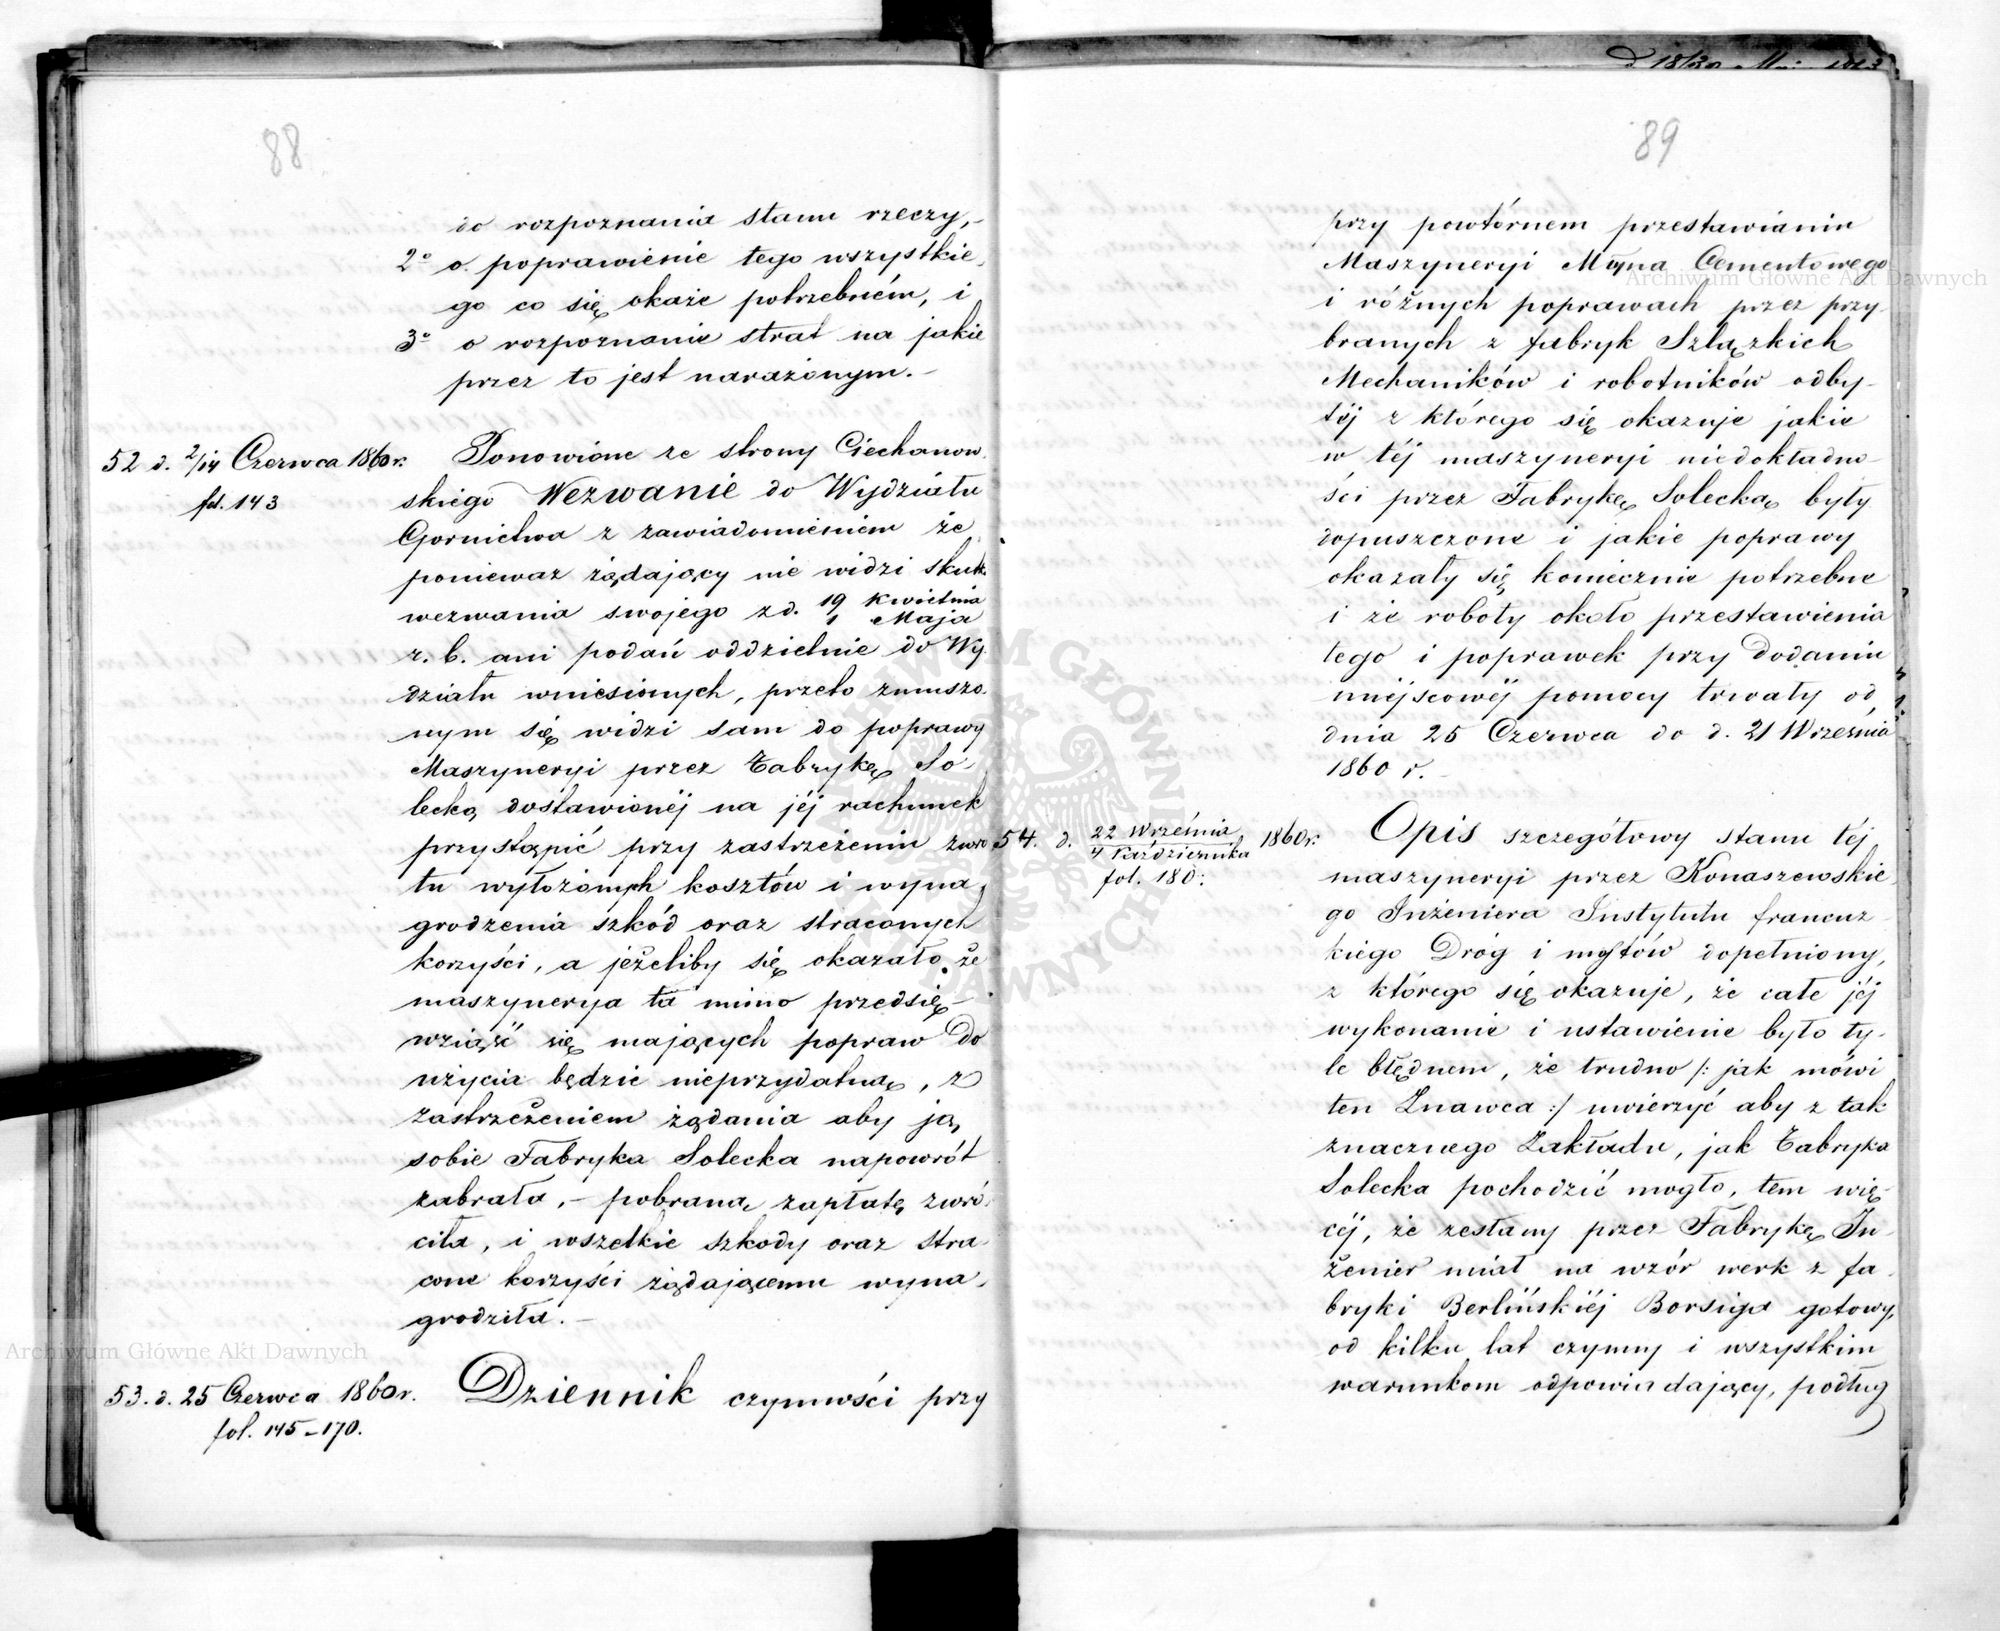 88
do rozpoznania stanu rzeczy,-
2° o poprawienie tego wszystkie-
go co się okaże potrzebném, i
3° o rozpoznanie strat na jakie
przez to jest narażonym.-
52 d. 2/14 Czerwca 1860 r. Ponowione ze strony Ciechanow-
fol. 143 skiego Wezwanie do Wydziału
Gornictwa z zawiadomieniem że
poniewaz żądający nie widzi skutk.
wezwania swojego z d. 19 Kwietnia / 1 Maja
r. b. ani podań oddzielnie do Wy-
działu wniesionych, przeto zmuszo-
nym się widzi sam do poprawy
Maszyneryi przez Fabrykę So-
lecką dostawionéj na jéj rachunek
przystąpić przy zastrzeżeniu zwro-
tu wyłożonych kosztów i wyna-
grodzenia szkód oraz straconych
korzyści, a jeżeliby się okazało że
maszynerya ta mimo przedsię-
wziąść się mających popraw do
użycia będzie nieprzydatną, z
zastrzeżeniem żądania aby ją
sobie Fabryka Solecka napowrót
zabrała,- pobraną zapłatę zwró-
ciła, i wszelkie szkody oraz stra-
cone korzyści żądającemu wyna-
grodziła.-
53. d. 25 Czerwca 1860 r. Dziennik czynności przy
fol. 145-170.
89
przy powtórnem przestawianiu
Maszyneryi Młyna Cementowego
i różnych poprawach przez przy-
branych z fabryk Szlązkich
Mechaników i robotników odby-
téj z którego się okazuje jakie
w téj maszyneryi niedokładno-
ści przez Fabrykę Solecką były
dopuszczone i jakie poprawy
okazały się koniecznie potrzebne
i że roboty około przestawienia
tego i poprawek przy dodaniu
miéjscowéj pomocy trwały od
dnia 25 Czerwca do d. 21 Września
1860 r.-
54. d. 22 Września / 4 Października 1860 r. Opis szczegółowy stanu téj
fol. 180: maszyneryi przez Konaszewskie-
go Inżeniera Instytutu francuz-
kiego Dróg i mostów dopełniony,
z którego się okazuje, że całe jéj
wykonanie i ustawienie było ty-
le błędnem, że trudno /: jak mówi
ten Znawca :/ uwierzyć aby z tak
znacznego Zakładu, jak Fabryka
Solecka pochodzić mogło, tem wię-
céj, że zesłany przez Fabrykę In-
żenier miał na wzór werk z fa-
bryki Berlińskiéj Borsiga gotowy,
od kilku lat czynny i wszystkim
warunkom odpowiadający, podług
Archiwum Główne Akt Dawnych
Archiwum Główne Akt Dawnych
ARCHIWUM GŁÓWNE AKT DAWNYCH